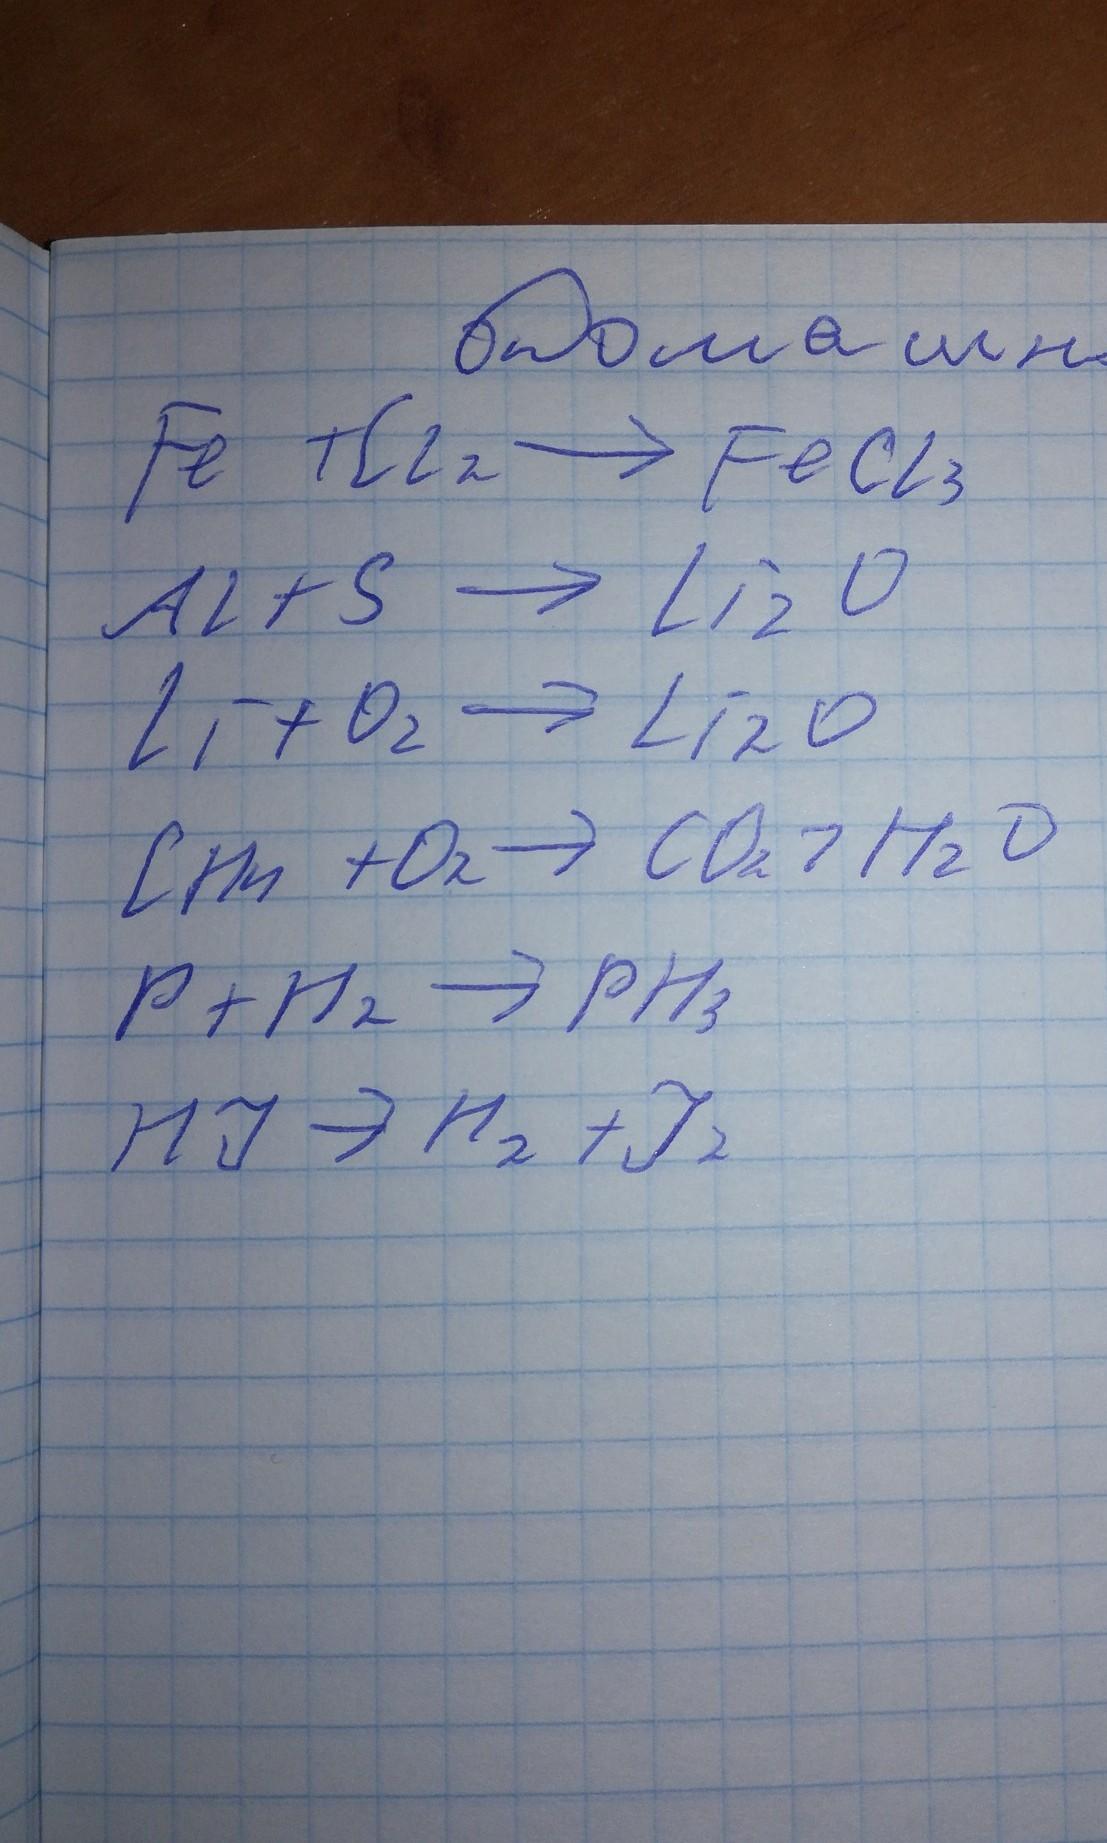 домашн
Fe + Cl₂ → FeCl₃
Al + S → Li₂O
Li + O₂ → Li₂O
CH₄ + O₂ → CO₂ + H₂O
P + H₂ → PH₃
HJ → H₂ + J₂